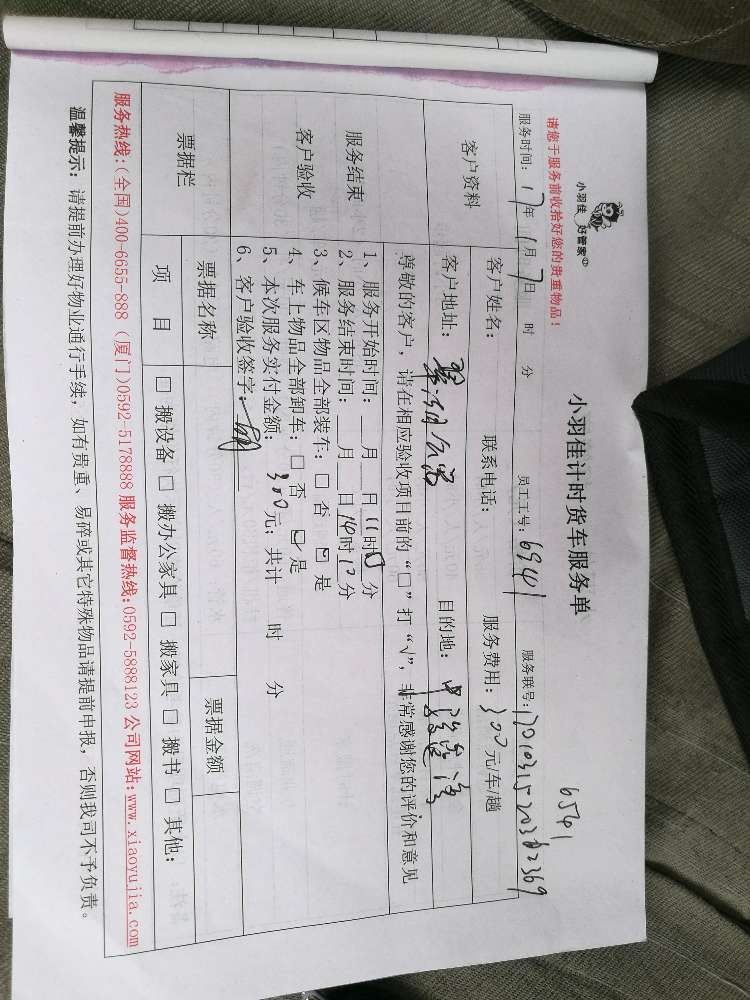 小羽佳 好管家
小羽佳计时货车服务单
6541
请您于服务前收拾好您的贵重物品！
服务时间：17年 1月 7日 时 分 员工工号：6941 服务联号：
客户资料
客户姓名： 联系电话： 服务费用：300元/车/趟
客户地址： 目的地：
尊敬的客户，请在相应验收项目前的“□”打“√”，非常感谢您的评价和意见
服务结束
客户验收
1、服务开始时间：___月___日11时 分
2、服务结束时间：___月___日14时12分
3、候车区物品全部装车：□ 否 ☑ 是
4、车上物品全部卸车：□ 否 ☑ 是
5、本次服务实付金额：300元；共计 时 分
6、客户验收签字：
票据栏
票据名称 票据金额
项 目 □ 搬设备 □ 搬办公家具 □ 搬家具 □ 搬书 □ 其他：
服务热线：(全国)400-6655-888 (厦门)0592-5178888 服务监督热线：0592-5888123 公司网站：www.xiaoyujia.com
温馨提示：请提前办理好物业通行手续，如有贵重、易碎或其它特殊物品请提前申报，否则我司不予负责。